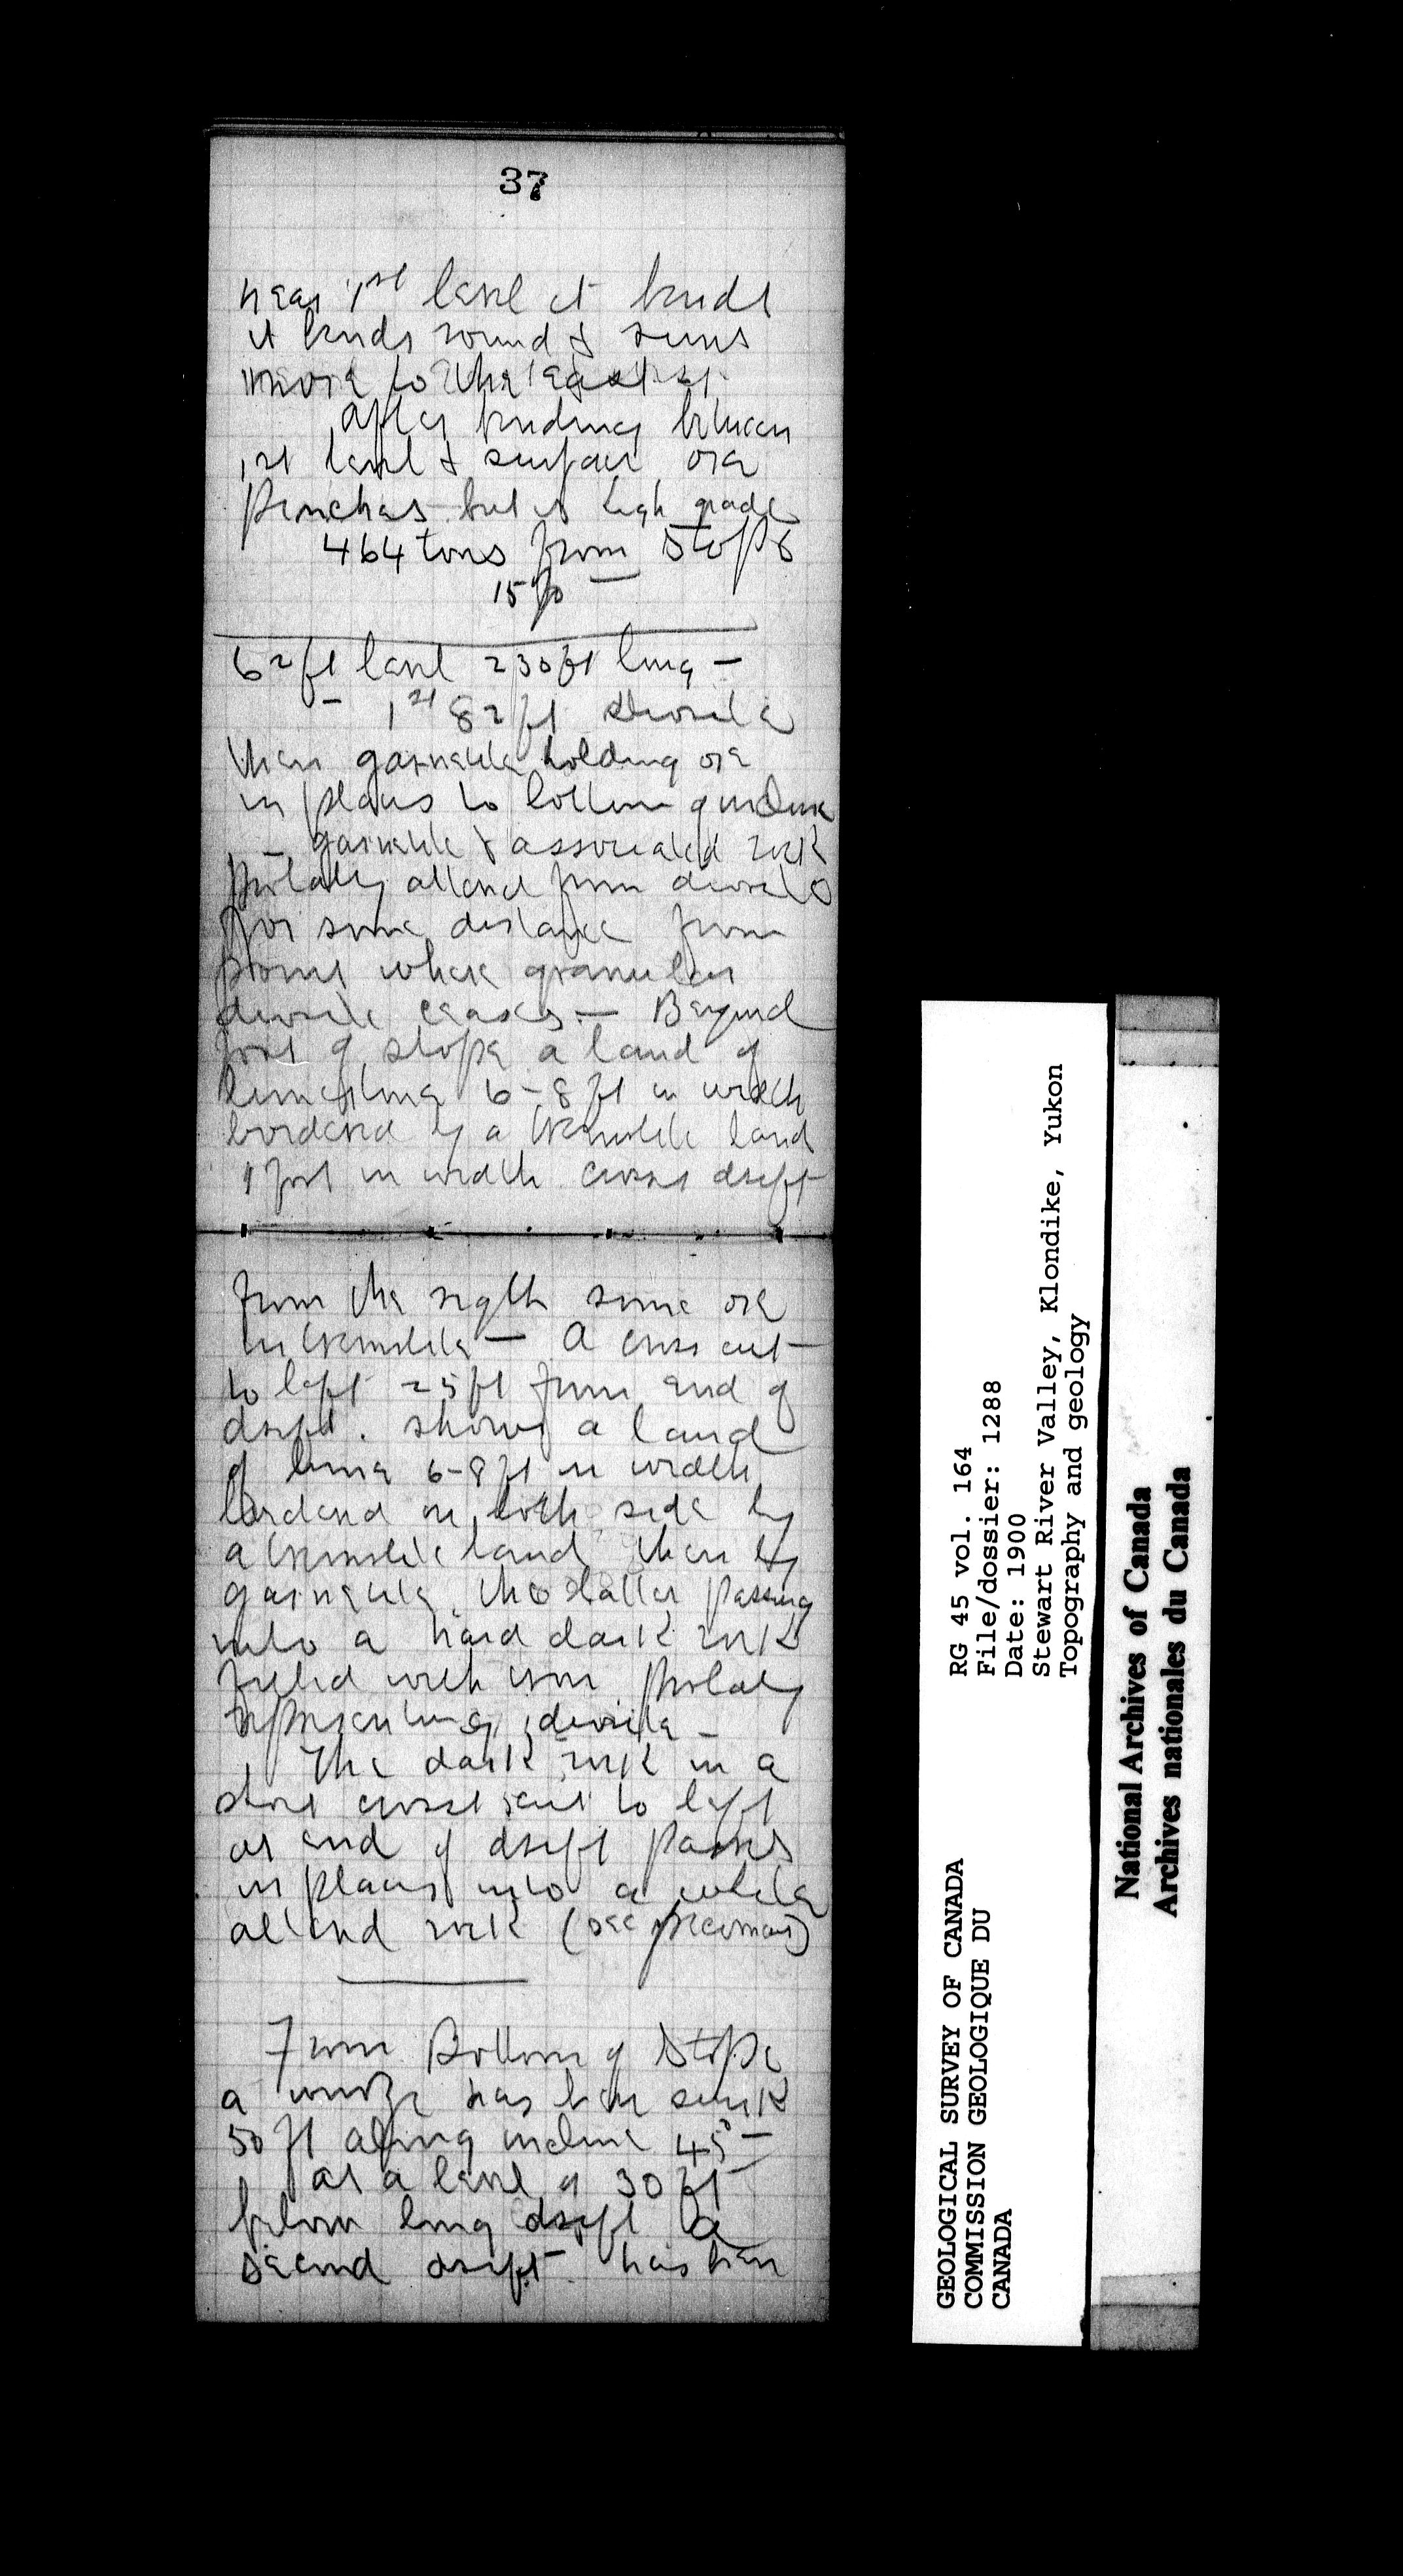 37
near 1st level it bends
it bends round & runs
more to the east
after bending between
1st level & surface ore
pinches but is high grade
464 tons from Stope
15%
62 ft level 230 ft long —
— 1st 82 ft diorite
then garnetite holding ore
in places to bottom of incline
— garnetite & associated rock
probably altered from diorite
for some distance from
point where granular
diorite ceases — Beyond
foot of stope a band of
limestone 6-8 ft in width
bordered by a tremolite band
1 foot in width crosses drift
from the right some ore
in tremolite — A cross cut
to left 25 ft from end of
drift shows a band
of lime 6-8 ft in width
bordered on both side by
a tremolite band then by
garnetite the latter passing
into a hard dark rock
filled with iron probably
representing diorite —
The dark rock in a
short crosscut to left
at end of drift passes
in places into a white
altered rock (see specimens)
From Bottom of Stope
a winze has been sunk
50 ft along incline 45° —
at a level of 30 ft
below long drift a
second drift has been
RG 45 vol. 164
File/dossier: 1288
Date: 1900
Stewart River Valley, Klondike, Yukon
Topography and geology
GEOLOGICAL SURVEY OF CANADA
COMMISSION GEOLOGIQUE DU
CANADA
National Archives of Canada
Archives nationales du Canada